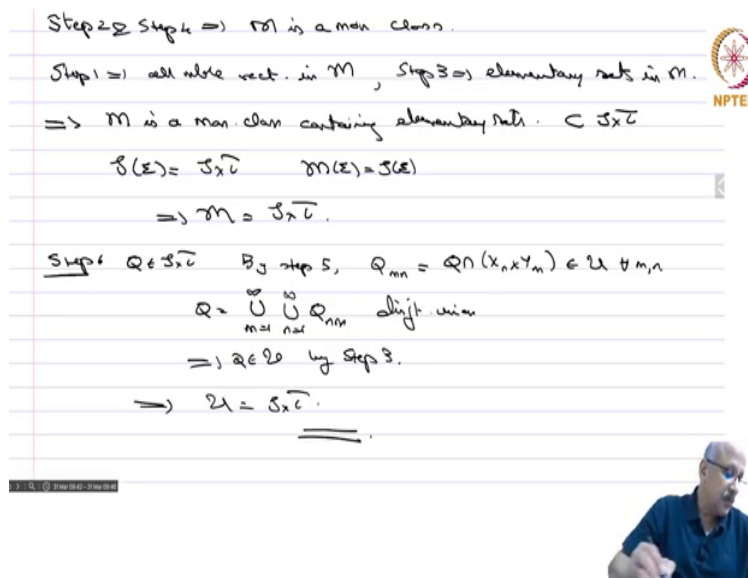 Step 2 & Step 4 => M is a mon class.
Step 1 => all mble rect. in M, Step 3 => elementary sets in M.
NPTEL
=> M is a mon. class containing elementary sets. ⊂ S×τ
S(Σ) = S×τ M(Σ) = S(Σ)
=> M = S×τ.
Step 6 Q ∈ S×τ By step 5, Q_mn = Q∩(X_n×Y_m) ∈ U ∀ m,n
Q = ∪_{m=1}^∞ ∪_{n=1}^∞ Q_nm disjt. union
=> Q ∈ U by Step 3.
=> U = S×τ.